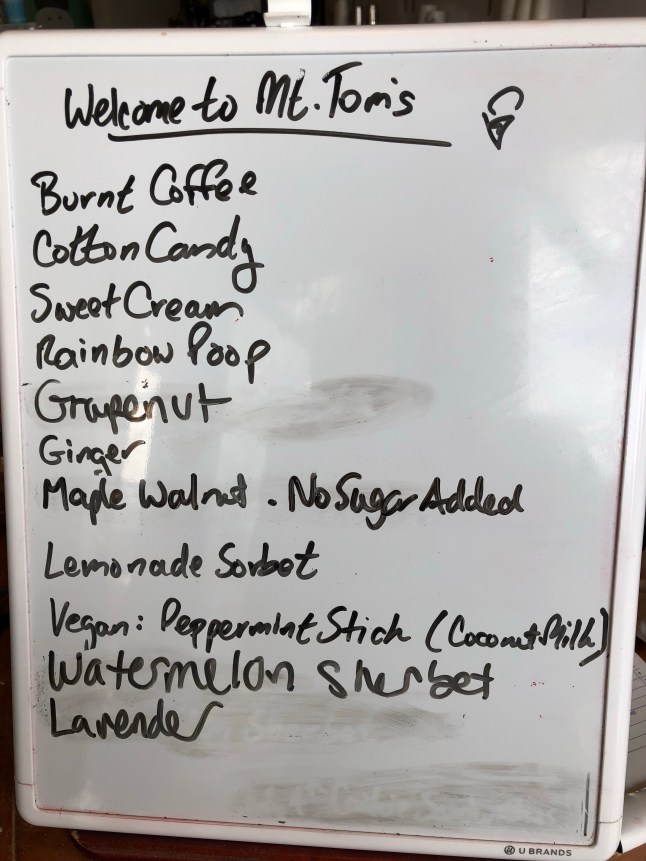 Welcome to Mt. Tom's
Burnt Coffee
Cotton Candy
Sweet Cream
Rainbow Poop
Grapenut
Ginger
Maple Walnut . No Sugar Added
Lemonade Sorbet
Vegan: Peppermint Stick (Coconut Milk)
Watermelon Sherbet
Lavender
U BRANDS